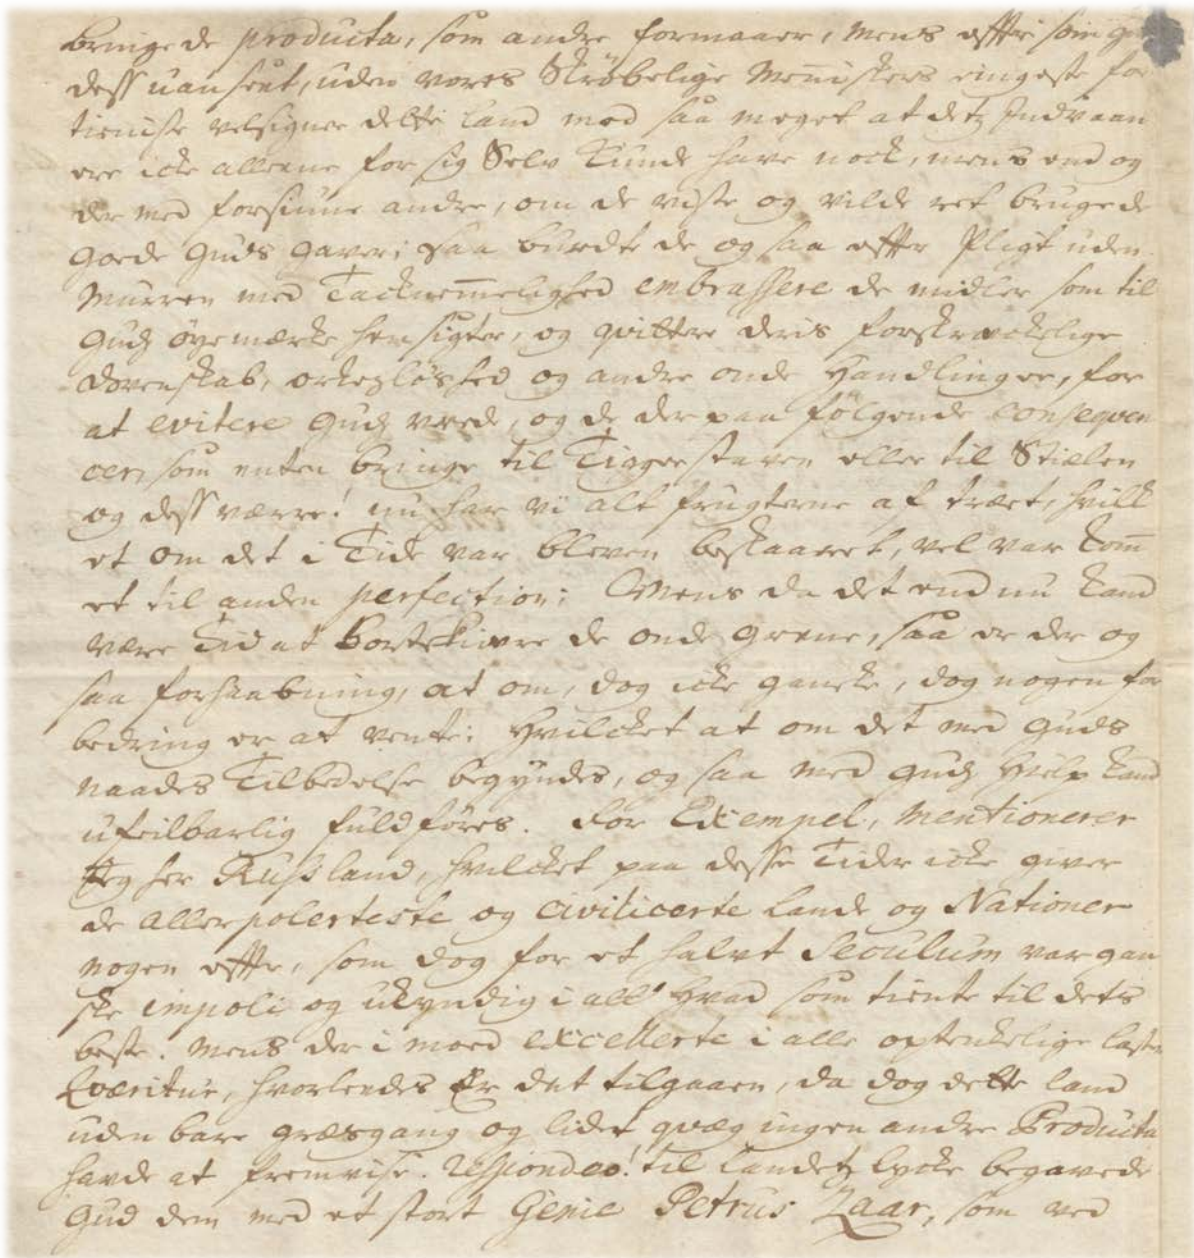 bringe de producta, som andre formaaer, mens efftersom
dess uanseet, uden vores Skröbelige Menniskers ringeste for
tieniste velsigner dette Land med saa meget at detz Indvaan
ere icke alleene for sig Selv Kunde have nock, mens end og
der med forsiune andre, om de viste og vilde ret bruge de
goede Guds gaver; Saa burdte de og saa effter Pligt uden
Murren med Tacknemmelighed embrassere de midler som til
Gudz øyemærke hensigter, og qvittere deris forskreckelige
dovenskab, orkesløshed og andre onde Handlinger, for
at evitere Gudz vrede, og de der paa fölgende conseqven
cer, som enten bringe til Tigger staven eller til Stielen
og dess værre! nu har vi alt frugterne af træet, hvilk
et om det i Tide var bleven beskaaret, vel var komm
et til anden perfection: Mens da det end nu kand
være Tid at Bortskiære de onde greene, saa er der og
saa forhaabning, at om, dog icke ganske, dog nogen for
bedring er at vente: Hvilcket at om det med Guds
naades Tilbedelse begyndes, og saa med Gudz Hielp kand
ufeilbarlig fuldföres. For Exempel, mentionerer
Jeg her Russland, hvilcket paa desse Tider icke giver
de aller polerteste og civilicerte Lande og Nationer
nogen effter, som dog for et halvt Seculum var gan
ske impoli og ukyndig i all hvad som tiente til dets
beste. Mens der i mod excellerte i alle optenkelige laster
Qværitur, hvorleedes Er det tilgaaen, da dog dette land
uden bare græsgang og lidet qvæg ingen andre Producta
havde at fremvise. Respondeo! til Landetz lycke begavede
Gud dem med et stort Genie Petrus Zaar, som ved